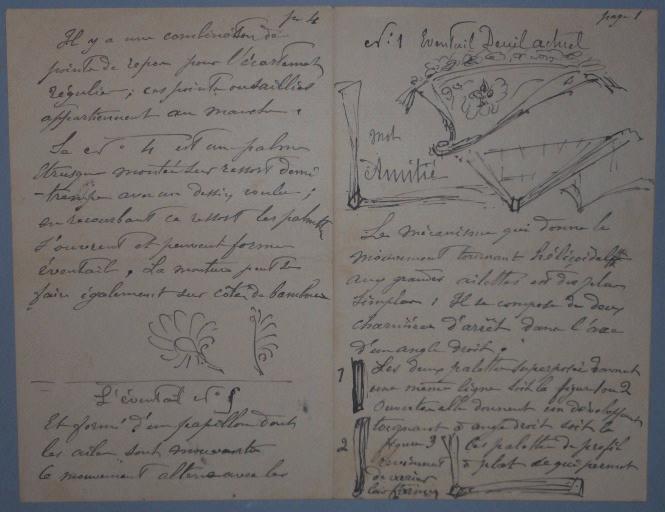 page 4
Il y a une combinaison de
points de repère pour l'écartement
régulier ; ces points ou saillies
appartiennent au manche.
Le N° 4 est un palme
étrusque montée sur ressort demi
-trempe avec un dessin voulu ;
en recourbant ce ressort les palmettes
s'ouvrent et peuvent former
éventail. La monture peut se
faire également sur côté de bambou
L'éventail N° 5
Est formé d'un papillon dont
les ailes sont mouvantes
Ce mouvement alterne avec les
page 1
N° 1 Eventail Deuil actuel
mot
Amitié
Le mécanisme qui donne le
mouvement tournant hélicoïdal
aux grandes ailettes est des plus
simples ; Il se compose de deux
charnières d'arrêt dans l'axe
d'un angle droit.
1 Les deux palettes superposées donnent
une même ligne soit la figure 1 ou 2
Ouverte elle donnent un développement
tournant à angle droit soit la
2 figure 3
Ces palettes de profil
à plat ce qui permet